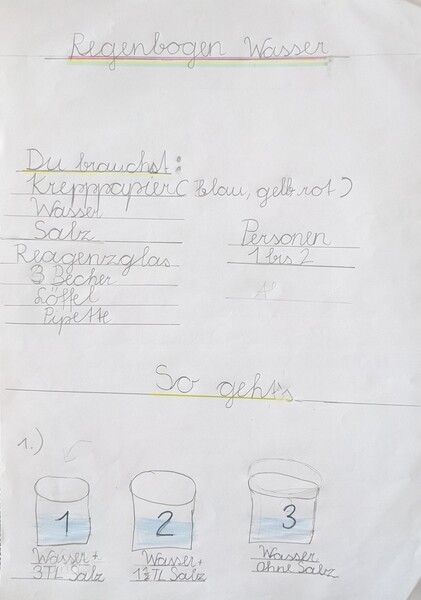 Regenbogen Wasser
Du brauchst:
Krepppapier (blau, gelb rot)
Wasser
Salz
Reagenzglas
3 Becher
Löffel
Pipette
Personen
1 bis 2
So geht's
1.)
1
2
3
Wasser +
3TL Salz
Wasser +
1½TL Salz
Wasser
ohne Salz